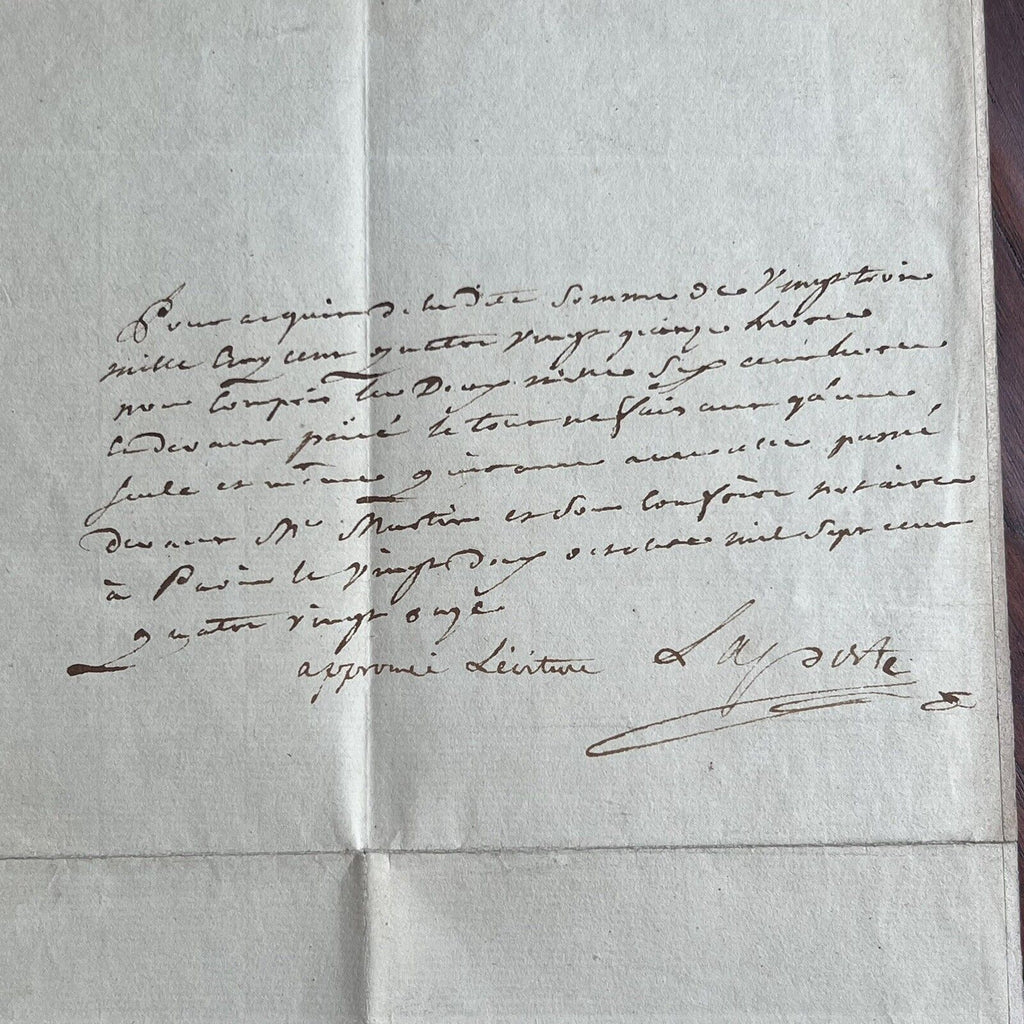 Pour acquit de la dite somme de Vingt trois
mille Cinq cent quatre vingt quinze livres
non Compris les Deux mille Six cent livres
cy devant païé le tout ne faisant qu'une
seule et même quittance avec celle passé
devant Me Martin et son Confrère notaires
à Paris le Vingt deux octobre mil Sept cent
quatre vingt onze
approuvé L'écriture Laporte